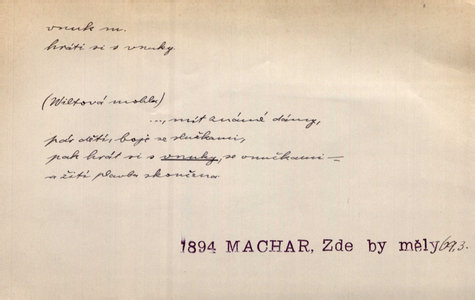 vnuk m.
hráti si s vnuky.
(Wiltová mohla)
..., mít známé dámy,
pár dětí, boje se služkami,
pak hrát si s vnuky, se vnučkami —
a žití plavba skončena.
1894 MACHAR, Zde by měly 69,3.